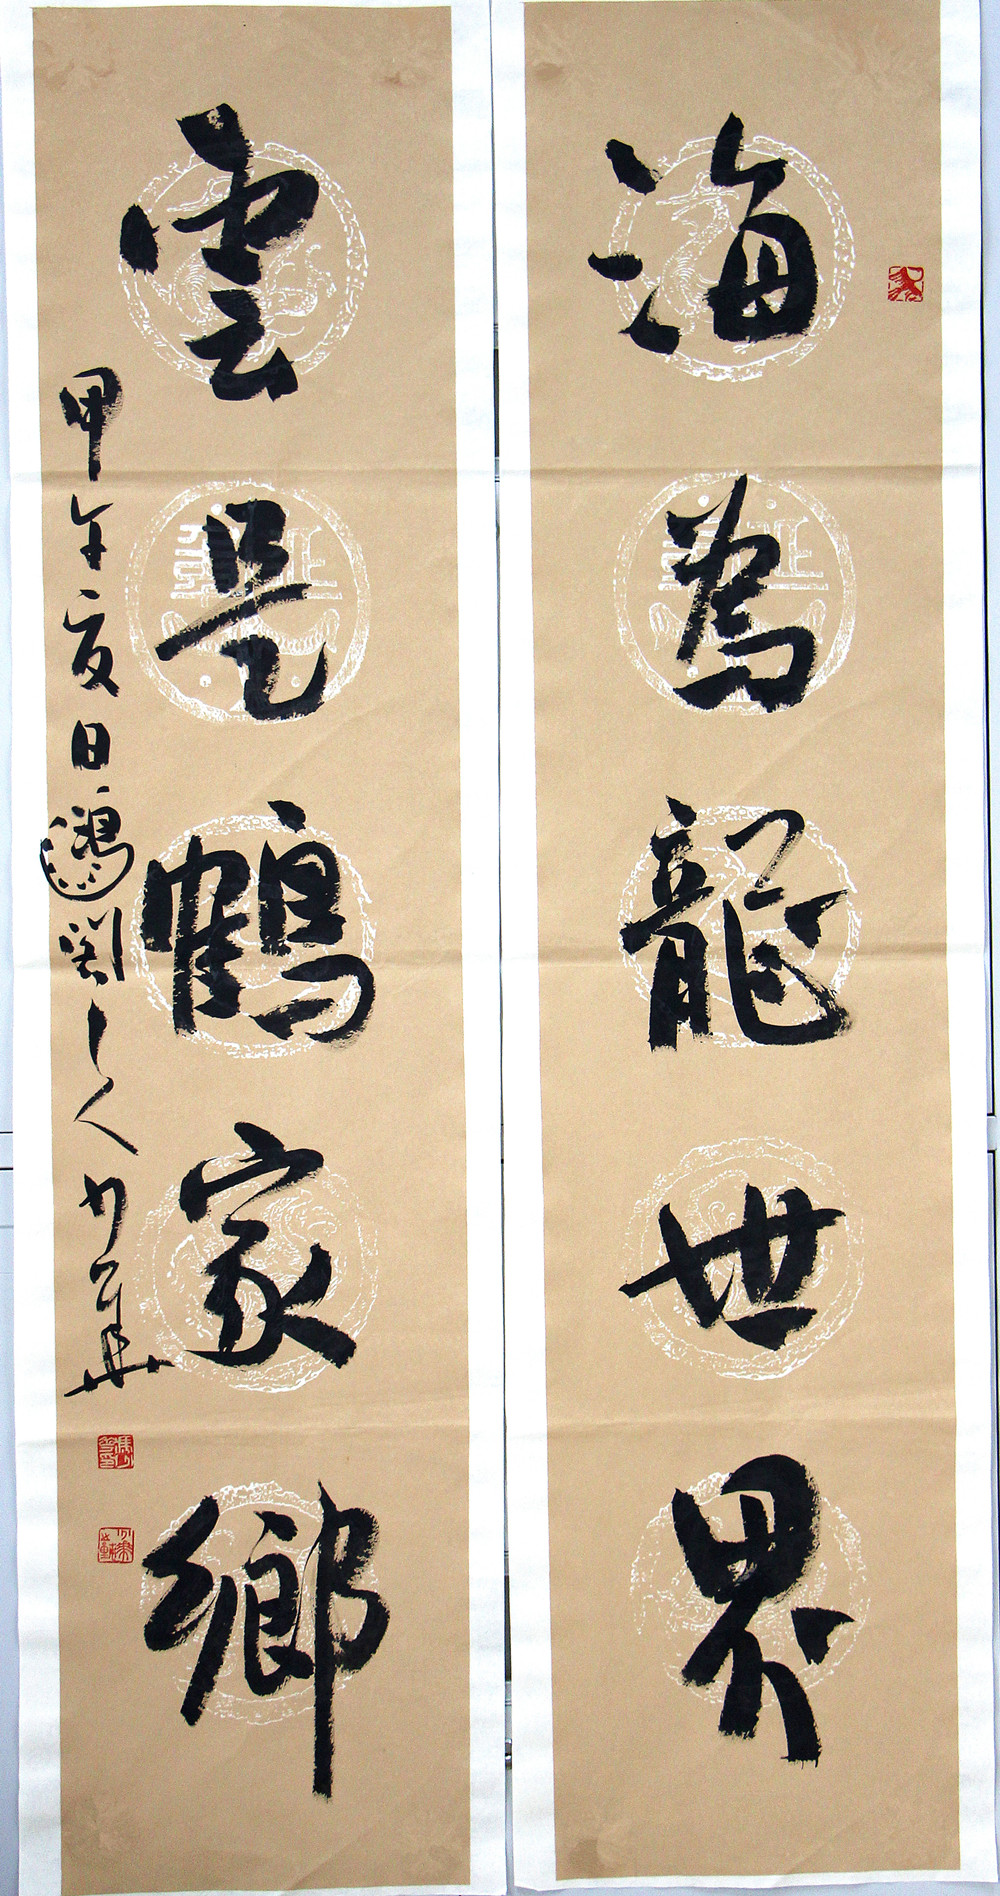 海為龍世界
雲是鶴家鄉
甲午夏日鴻闁上人少華